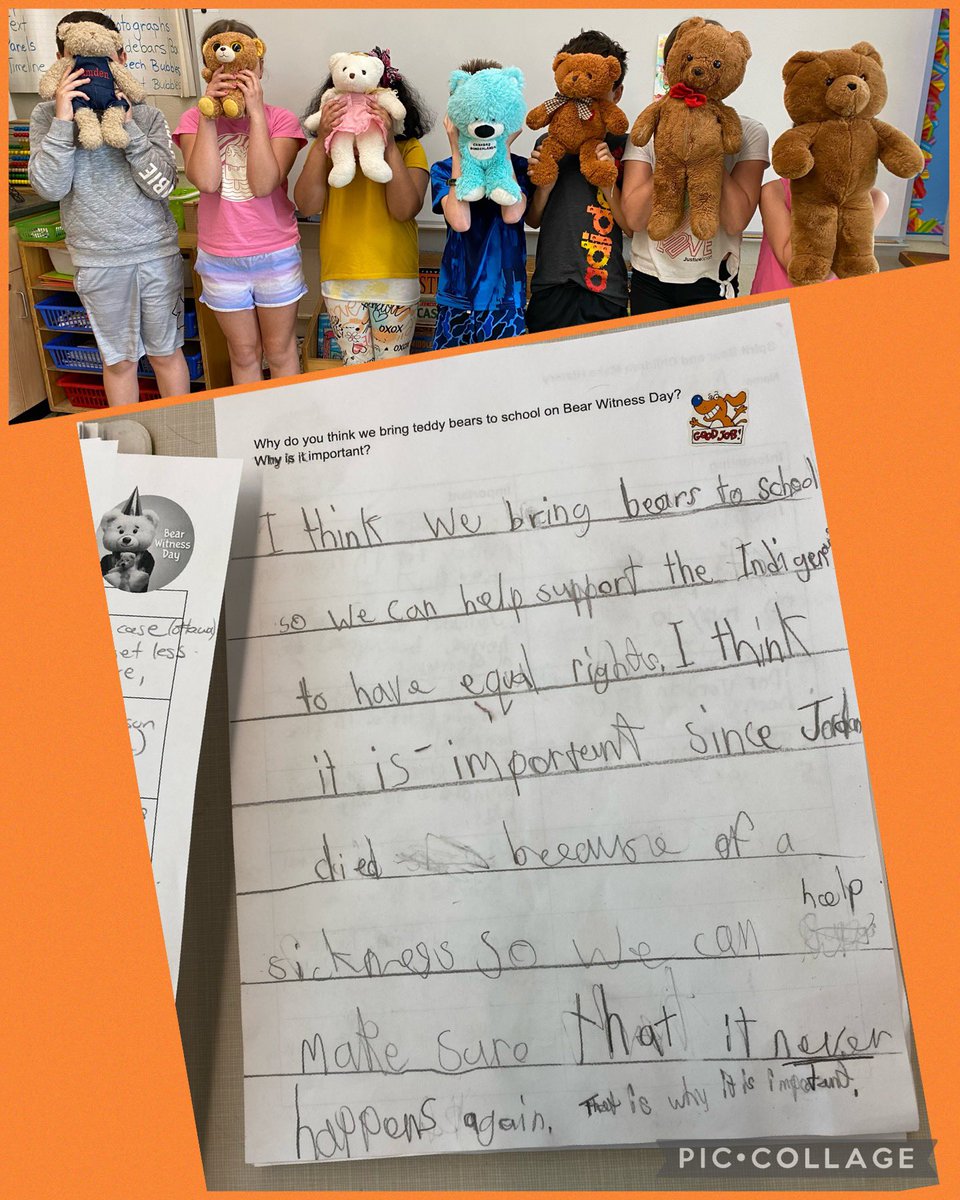 otographs
debars
eech Bubbles
Bubble
Timeline
Camden
BIE
LOVE
Justice
LOVE
OXOX
Why do you think we bring teddy bears to school on Bear Witness Day?
Why is it important?
GOOD JOB!
I think we bring bears to school
so we can help support the Indigenous
to have equal rights. I think
it is important since Jordan
died because of a
sickness so we can help
make sure that it never
happens again. That is why it is important.
Bear
Witness
Day
case (ottawa)
et less
PIC•COLLAGE